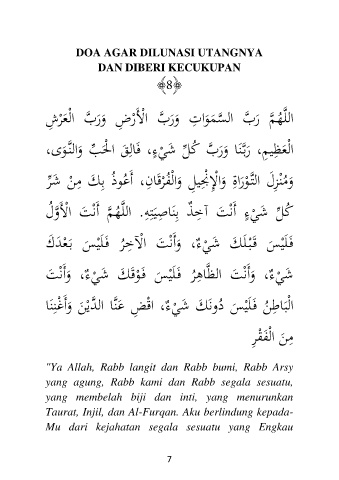 DOA AGAR DILUNASI UTANGNYA
DAN DIBERI KECUKUPAN
﴾8﴿
اللَّهُمَّ رَبَّ السَّمَوَاتِ وَرَبَّ الْأَرْضِ وَرَبَّ الْعَرْشِ
الْعَظِيمِ، رَبَّنَا وَرَبَّ كُلِّ شَيْءٍ، فَالِقَ الْحَبِّ وَالنَّوَى،
وَمُنْزِلَ التَّوْرَاةِ وَالْإِنْجِيلِ وَالْفُرْقَانِ، أَعُوذُ بِكَ مِنْ شَرِّ
كُلِّ شَيْءٍ أَنْتَ آخِذٌ بِنَاصِيَتِهِ. اللَّهُمَّ أَنْتَ الْأَوَّلُ
فَلَيْسَ قَبْلَكَ شَيْءٌ، وَأَنْتَ الْآخِرُ فَلَيْسَ بَعْدَكَ
شَيْءٌ، وَأَنْتَ الظَّاهِرُ فَلَيْسَ فَوْقَكَ شَيْءٌ، وَأَنْتَ
الْبَاطِنُ فَلَيْسَ دُونَكَ شَيْءٌ، اقْضِ عَنَّا الدَّيْنَ وَأَغْنِنَا
مِنَ الْفَقْرِ
"Ya Allah, Rabb langit dan Rabb bumi, Rabb Arsy
yang agung, Rabb kami dan Rabb segala sesuatu,
yang membelah biji dan inti, yang menurunkan
Taurat, Injil, dan Al-Furqan. Aku berlindung kepada-
Mu dari kejahatan segala sesuatu yang Engkau
7